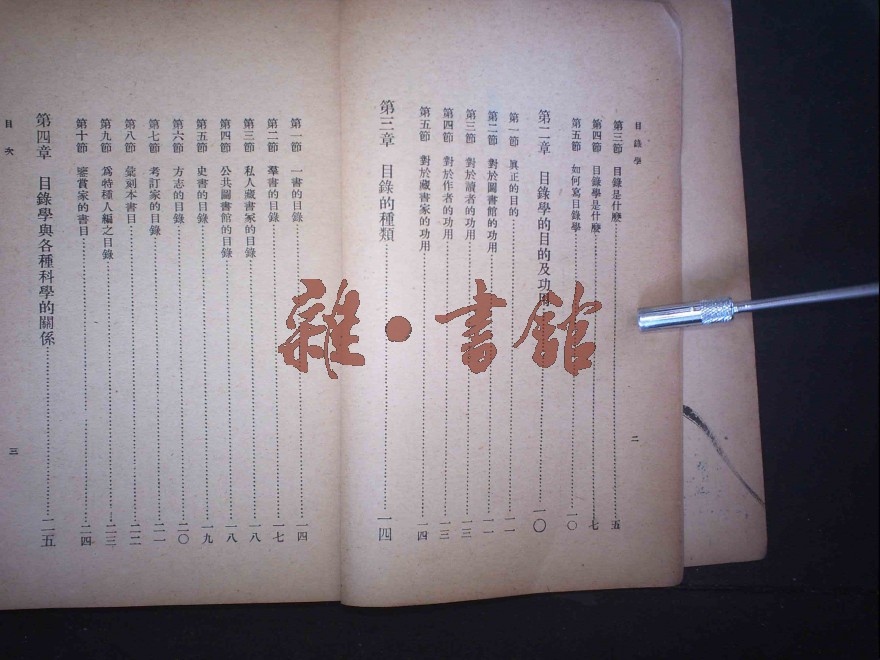 目錄學
第三節 目錄是什麼 五
第四節 目錄學是什麼 七
第五節 如何寫目錄學 一〇
第二章 目錄學的目的及功用 一〇
第一節 眞正的目的 一一
第二節 對於圖書館的功用 一一
第三節 對於讀者的功用 一三
第四節 對於作者的功用 一三
第五節 對於藏書家的功用 一四
第三章 目錄的種類 一四
二
第一節 一書的目錄 一四
第二節 羣書的目錄 一七
第三節 私人藏書家的目錄 一八
第四節 公共圖書館的目錄 一八
第五節 史書的目錄 一九
第六節 方志的目錄 二〇
第七節 考訂家的目錄 二一
第八節 彙刻本書目 二二
第九節 爲特種人編之目錄 二三
第十節 鑒賞家的書目 二四
第四章 目錄學與各種科學的關係 二五
目次
三
雜·書館